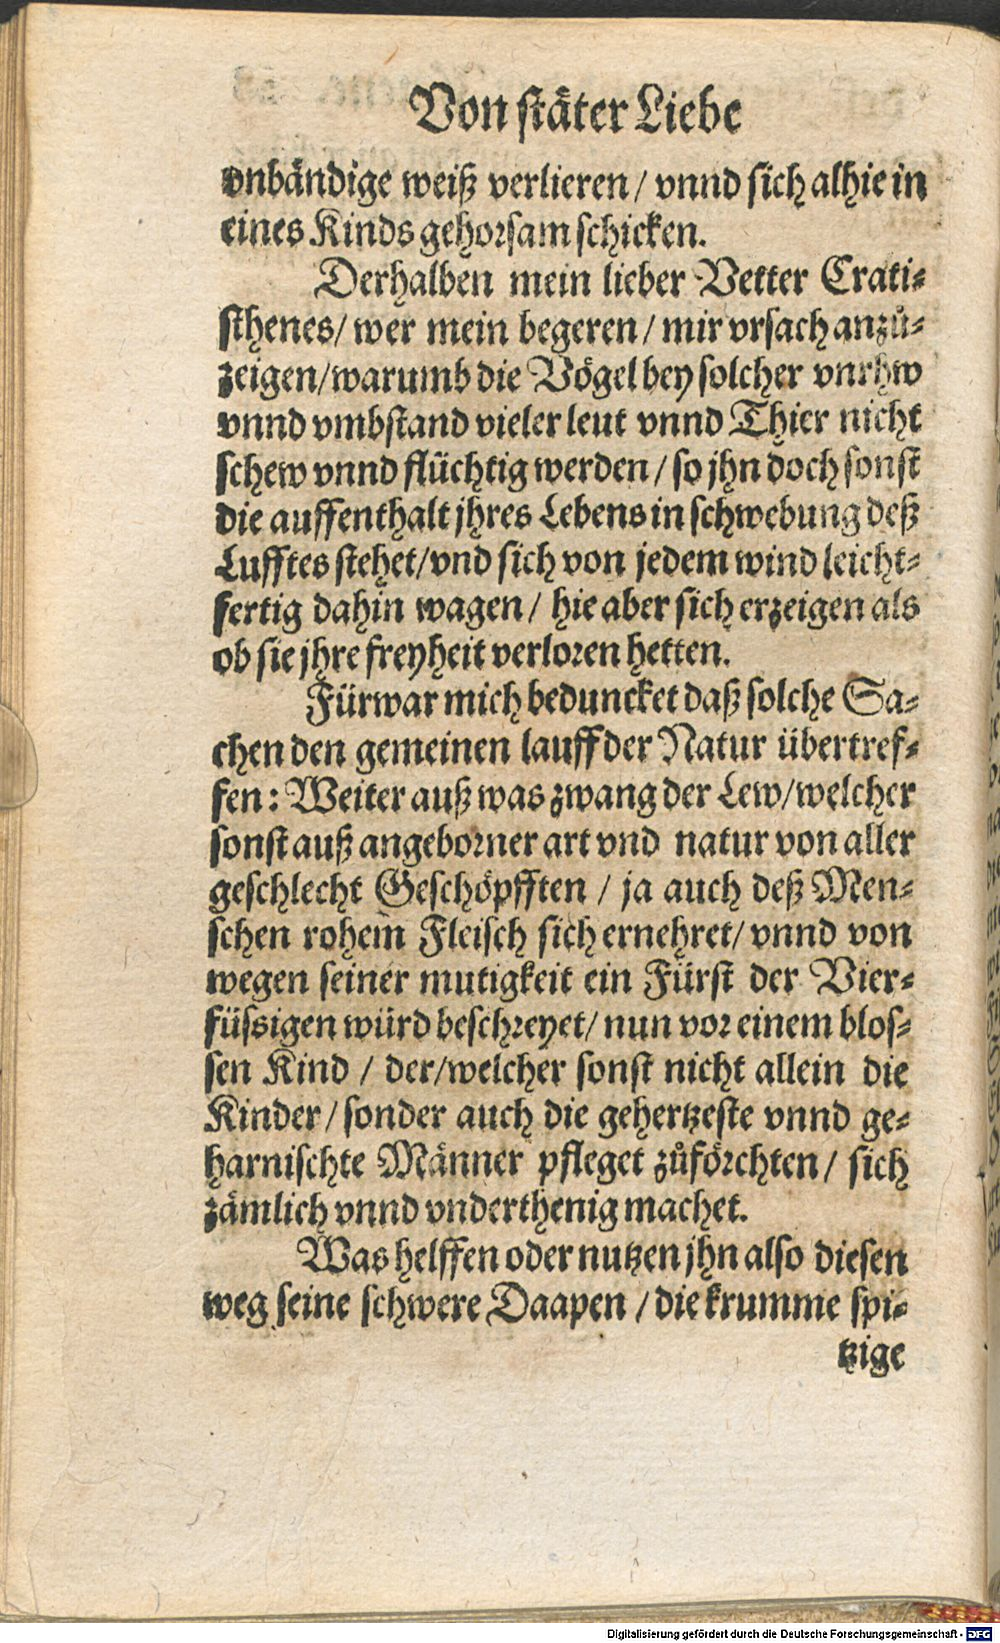 Von stäter Liebe
vnbändige weiß verlieren / vnnd sich alhie in
eines Kinds gehorsam schicken.
Derhalben mein lieber Vetter Crati-
sthenes / wer mein begeren / mir vrsach anzů-
zeigen / warumb die Vögel bey solcher vnrhw
vnnd vmbstand vieler leut vnnd Thier nicht
schew vnnd flüchtig werden / so jhn doch sonst
die auffenthalt jhres Lebens in schwebung deß
Lufftes stehet / vnd sich von jedem wind leicht-
fertig dahin wagen / hie aber sich erzeigen als
ob sie jhre freyheit verloren hetten.
Fürwar mich beduncket daß solche Sa-
chen den gemeinen lauff der Natur übertref-
fen: Weiter auß was zwang der Lew / welcher
sonst auß angeborner art vnd natur von aller
geschlecht Geschöpfften / ja auch deß Men-
schen rohem Fleisch sich ernehret / vnnd von
wegen seiner mutigkeit ein Fürst der Vier-
füssigen würd beschreyet / nun vor einem blos-
sen Kind / der / welcher sonst nicht allein die
Kinder / sonder auch die gehertzeste vnnd ge-
harnischte Männer pfleget zůförchten / sich
zämlich vnnd vnderthenig machet.
Was helffen oder nutzen jhn also diesen
weg seine schwere Daapen / die krumme spi-
tzige
Digitalisierung gefördert durch die Deutsche Forschungsgemeinschaft - DFG